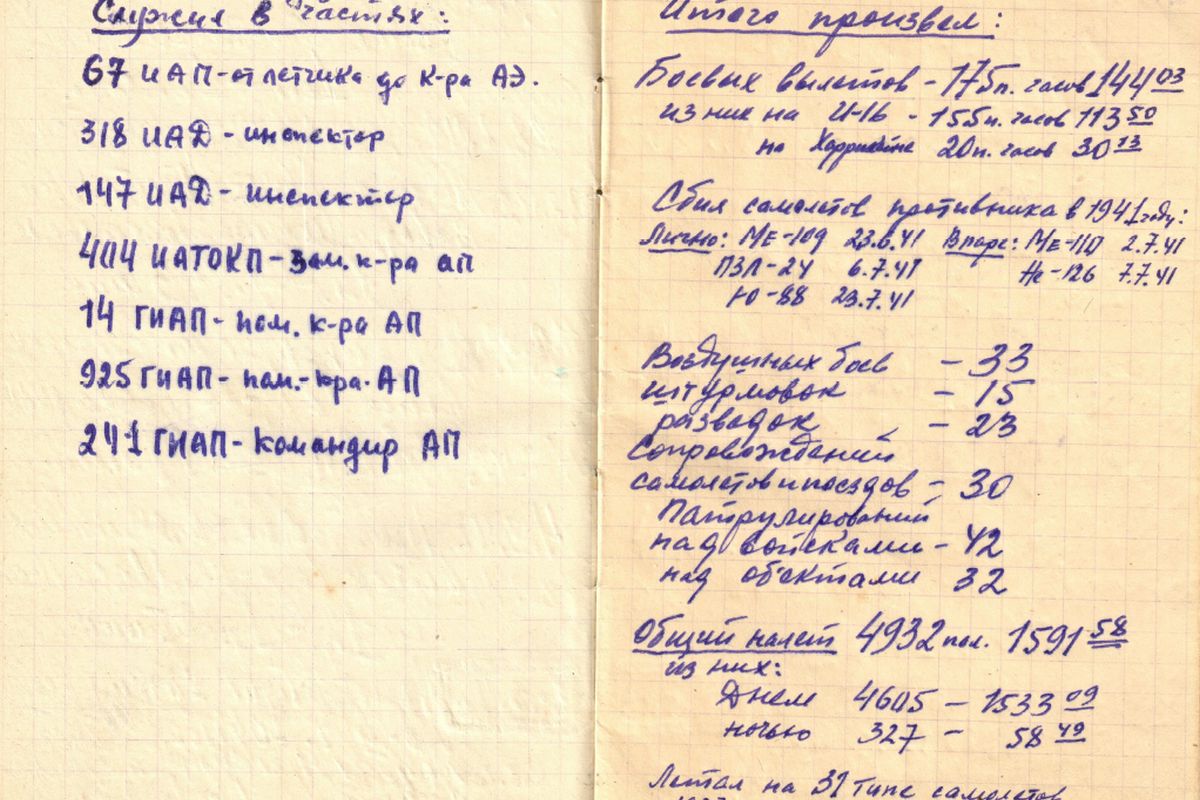 Служил в частях:
67 ИАП - от летчика до к-ра АЭ.
318 ИАД - инспектор
147 ИАД - инспектор
404 ИАТОКП - зам. к-ра АП
14 ГИАП - пом. к-ра АП
925 ГИАП - пом. - к-ра. АП
241 ГИАП - Командир АП
Итого произвел:
Боевых вылетов - 175п. часов 144 03
из них на И-16 - 155п. часов 113 50
на Харрикейне 20п. часов 30 13
Сбил самолетов противника в 1941 году:
Лично: МЕ-109 23.6.41 В паре: МЕ-110 2.7.41
ПЗЛ-24 6.7.41 Не-126 7.7.41
Ю-88 23.7.41
Воздушных боев - 33
штурмовок - 15
разведок - 23
Сопровождений
самолетов и поездов - 30
Патрулирований
над войсками - 42
над об'ектами 32
Общий налет 4932 пол. 1591 58
из них:
Днем 4605 - 1533 09
ночью 327 - 58 49
Летал на 31 типе самолетов